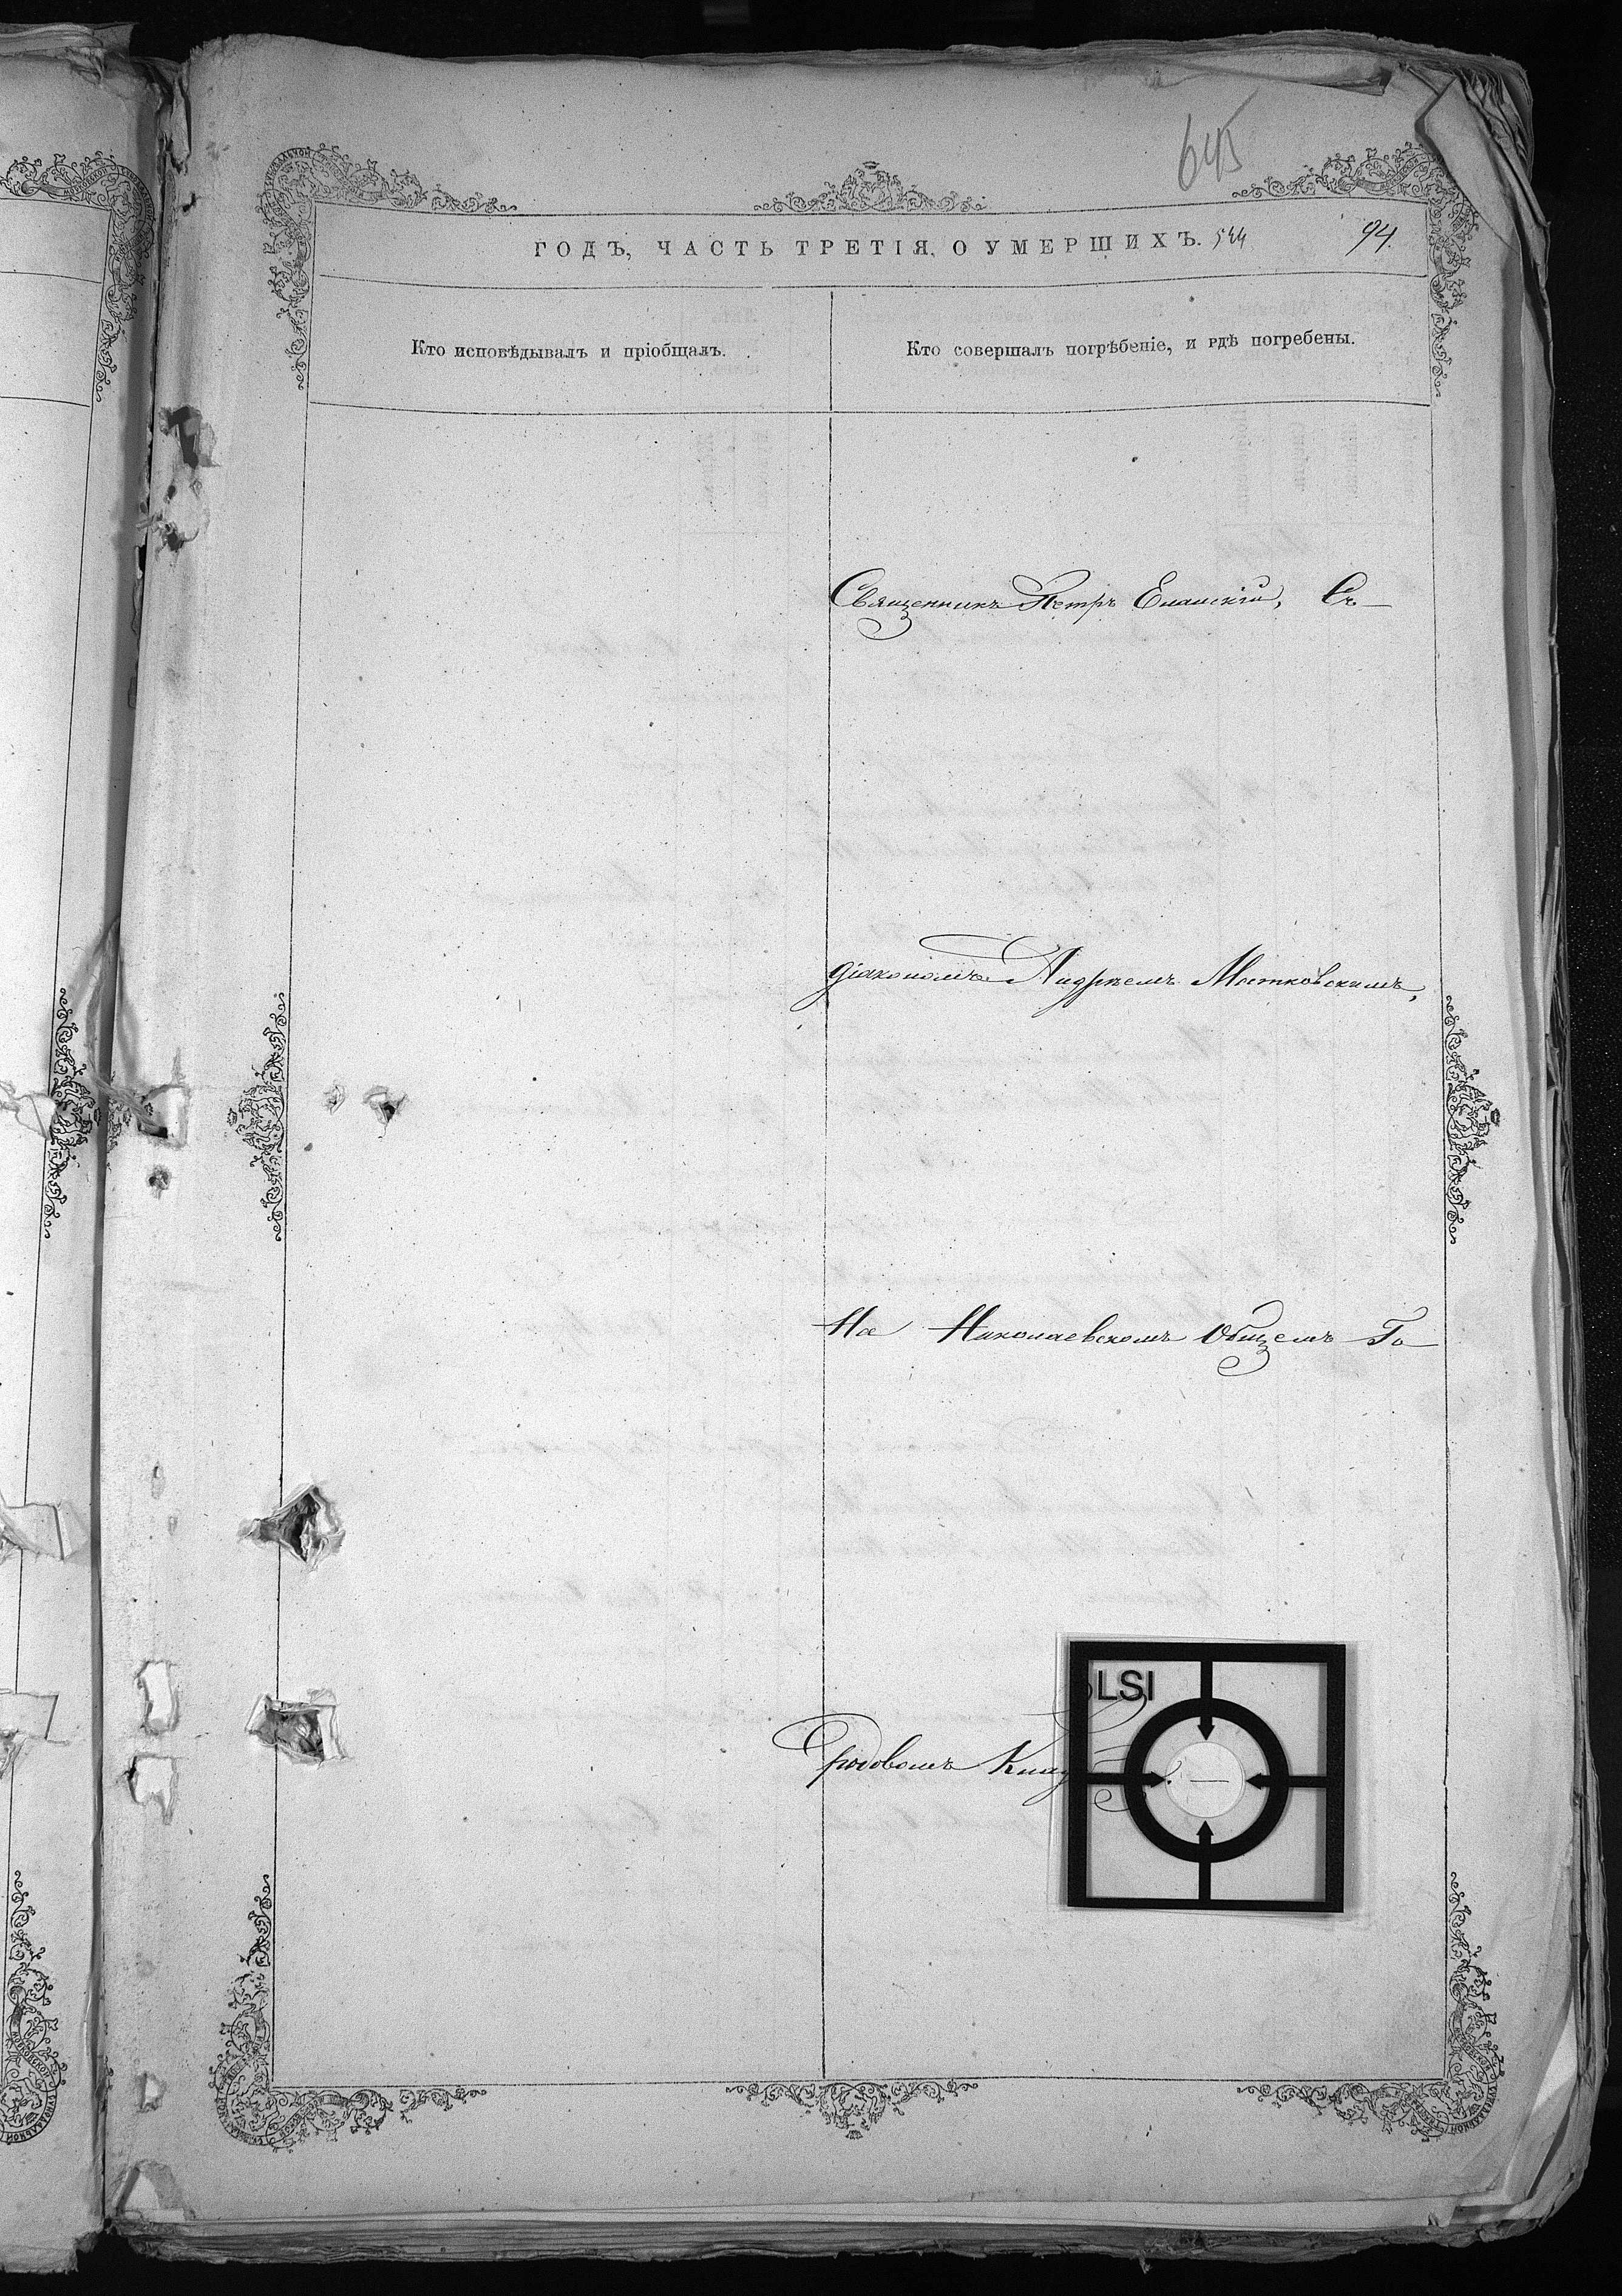 645
ГОДЪ, ЧАСТЬ ТРЕТІЯ, О УМЕРШИХЪ. 544 94.
Кто исповѣдывалъ и пріобщалъ.
Кто совершалъ погрѣбеніе, и гдѣ погребены.
Священникъ Петръ Еланскій, Съ
діакономъ Андреемъ Мстковскимъ,
На Николаевскомъ Общемъ Го
родовомъ
LSI